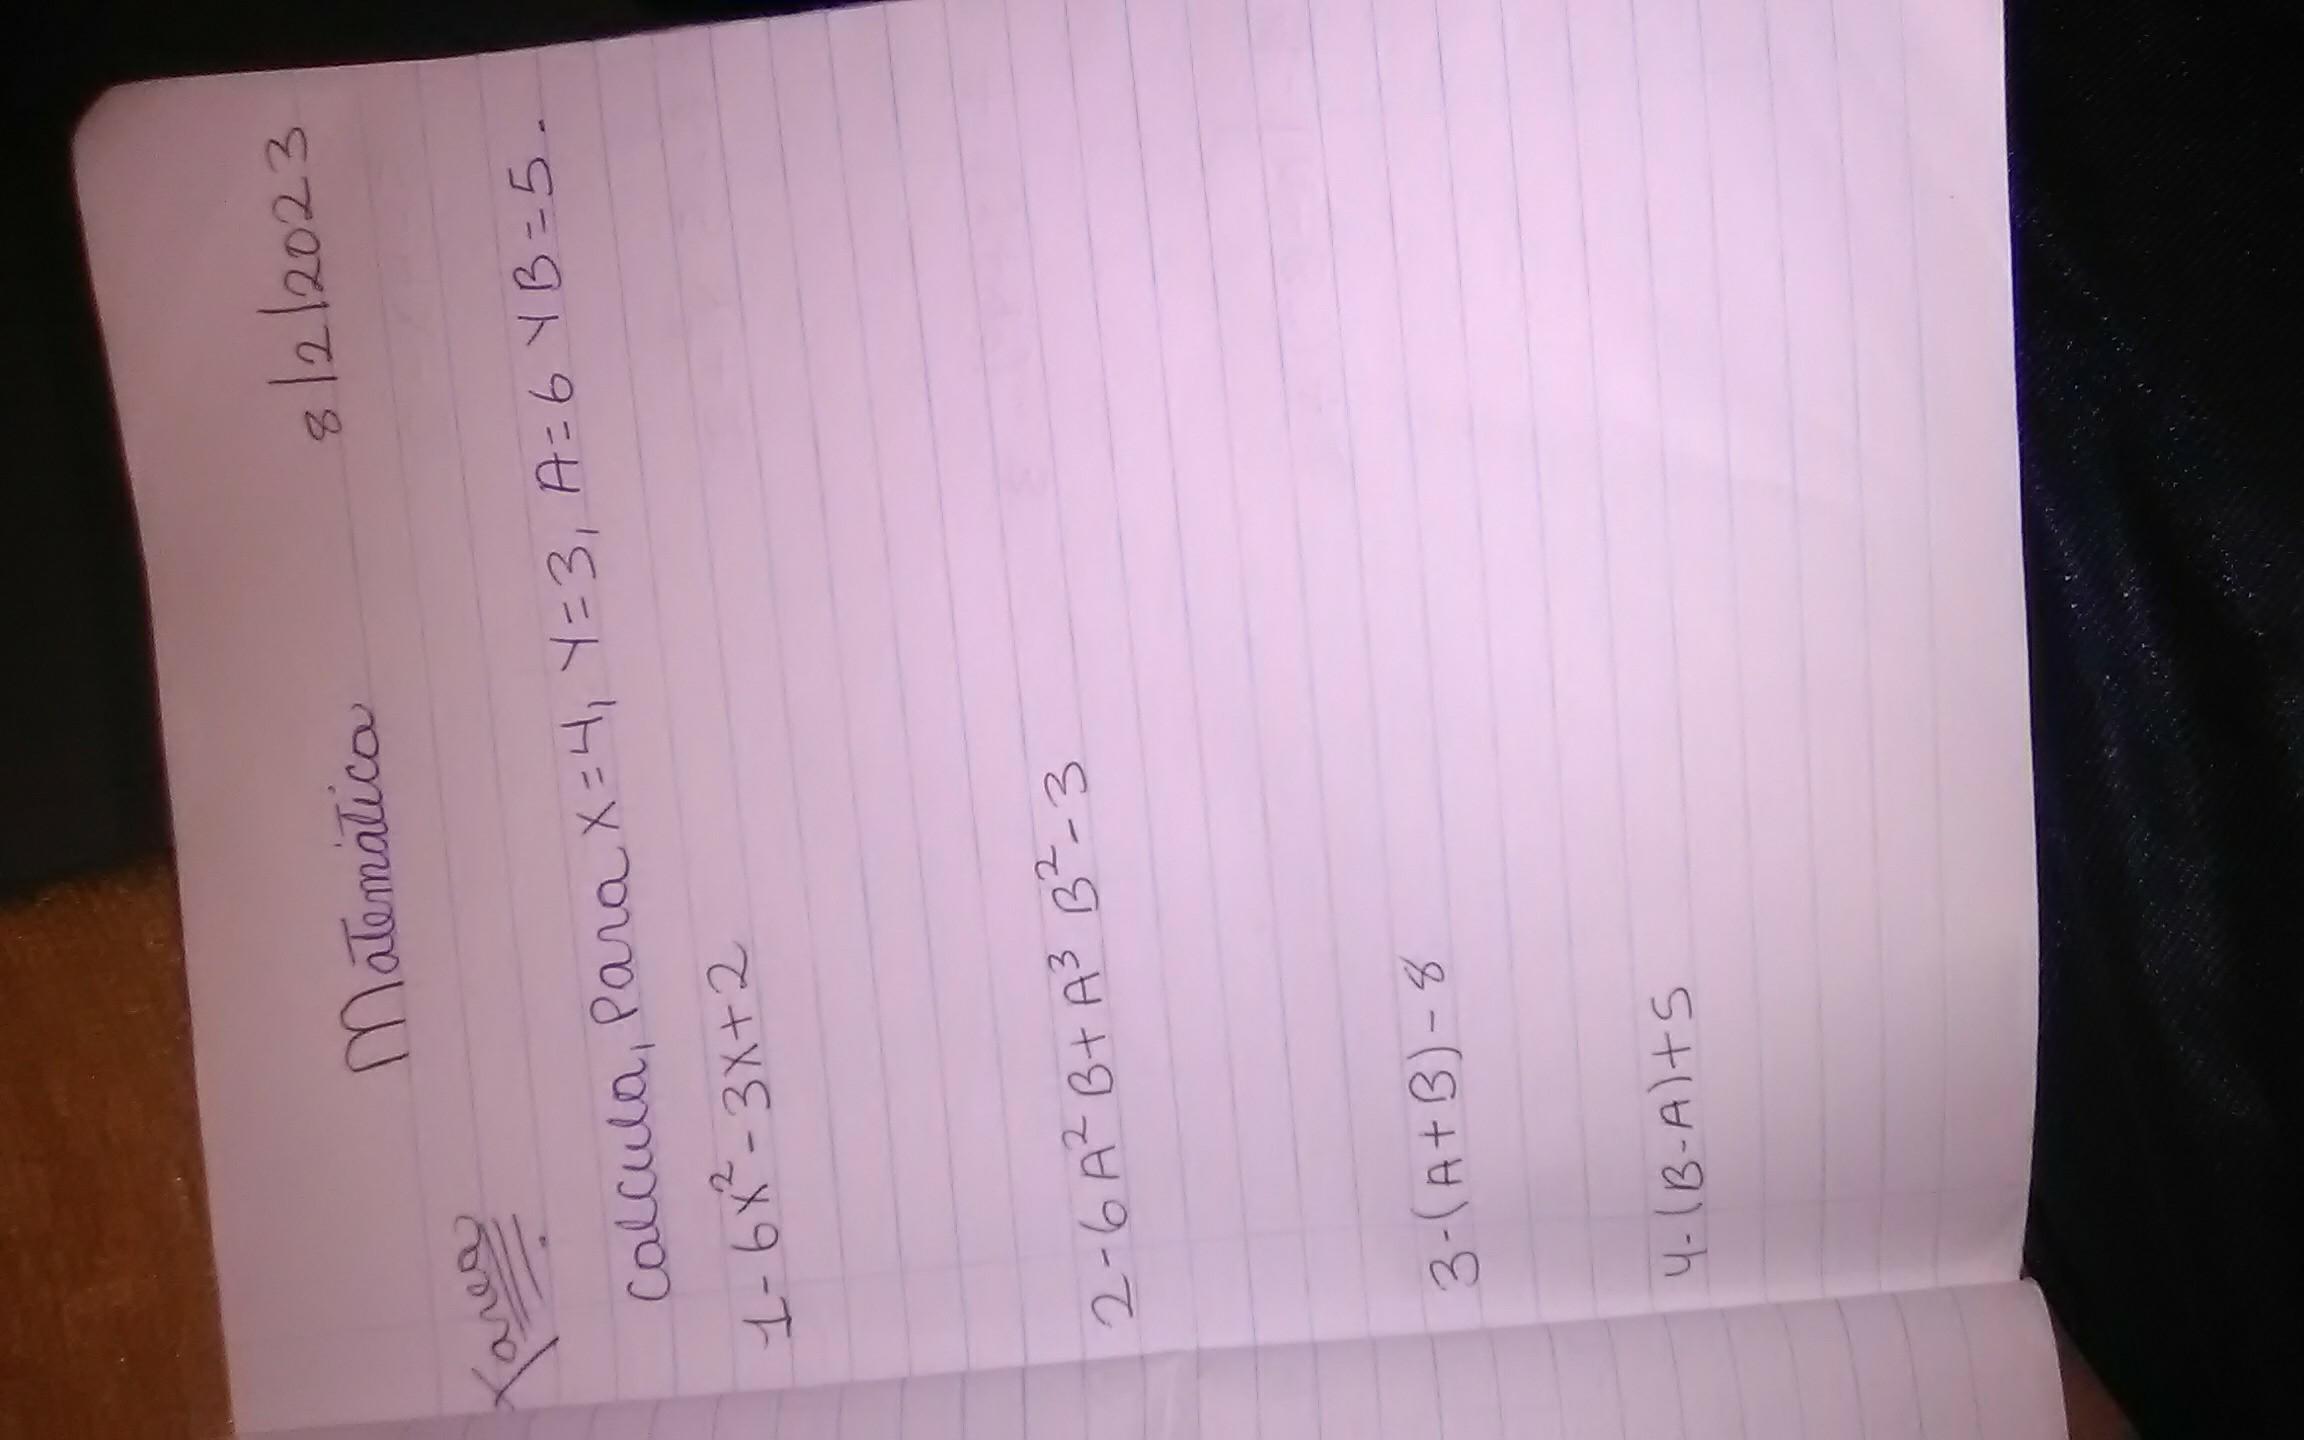 8/2/2023
Matemática
Tarea
Calcula, Para X=4, Y=3, A=6 Y B=5.
1- 6X² - 3X+2
2- 6A²B+A³B²-3
3-(A+B)-8
4-(B-A)+5